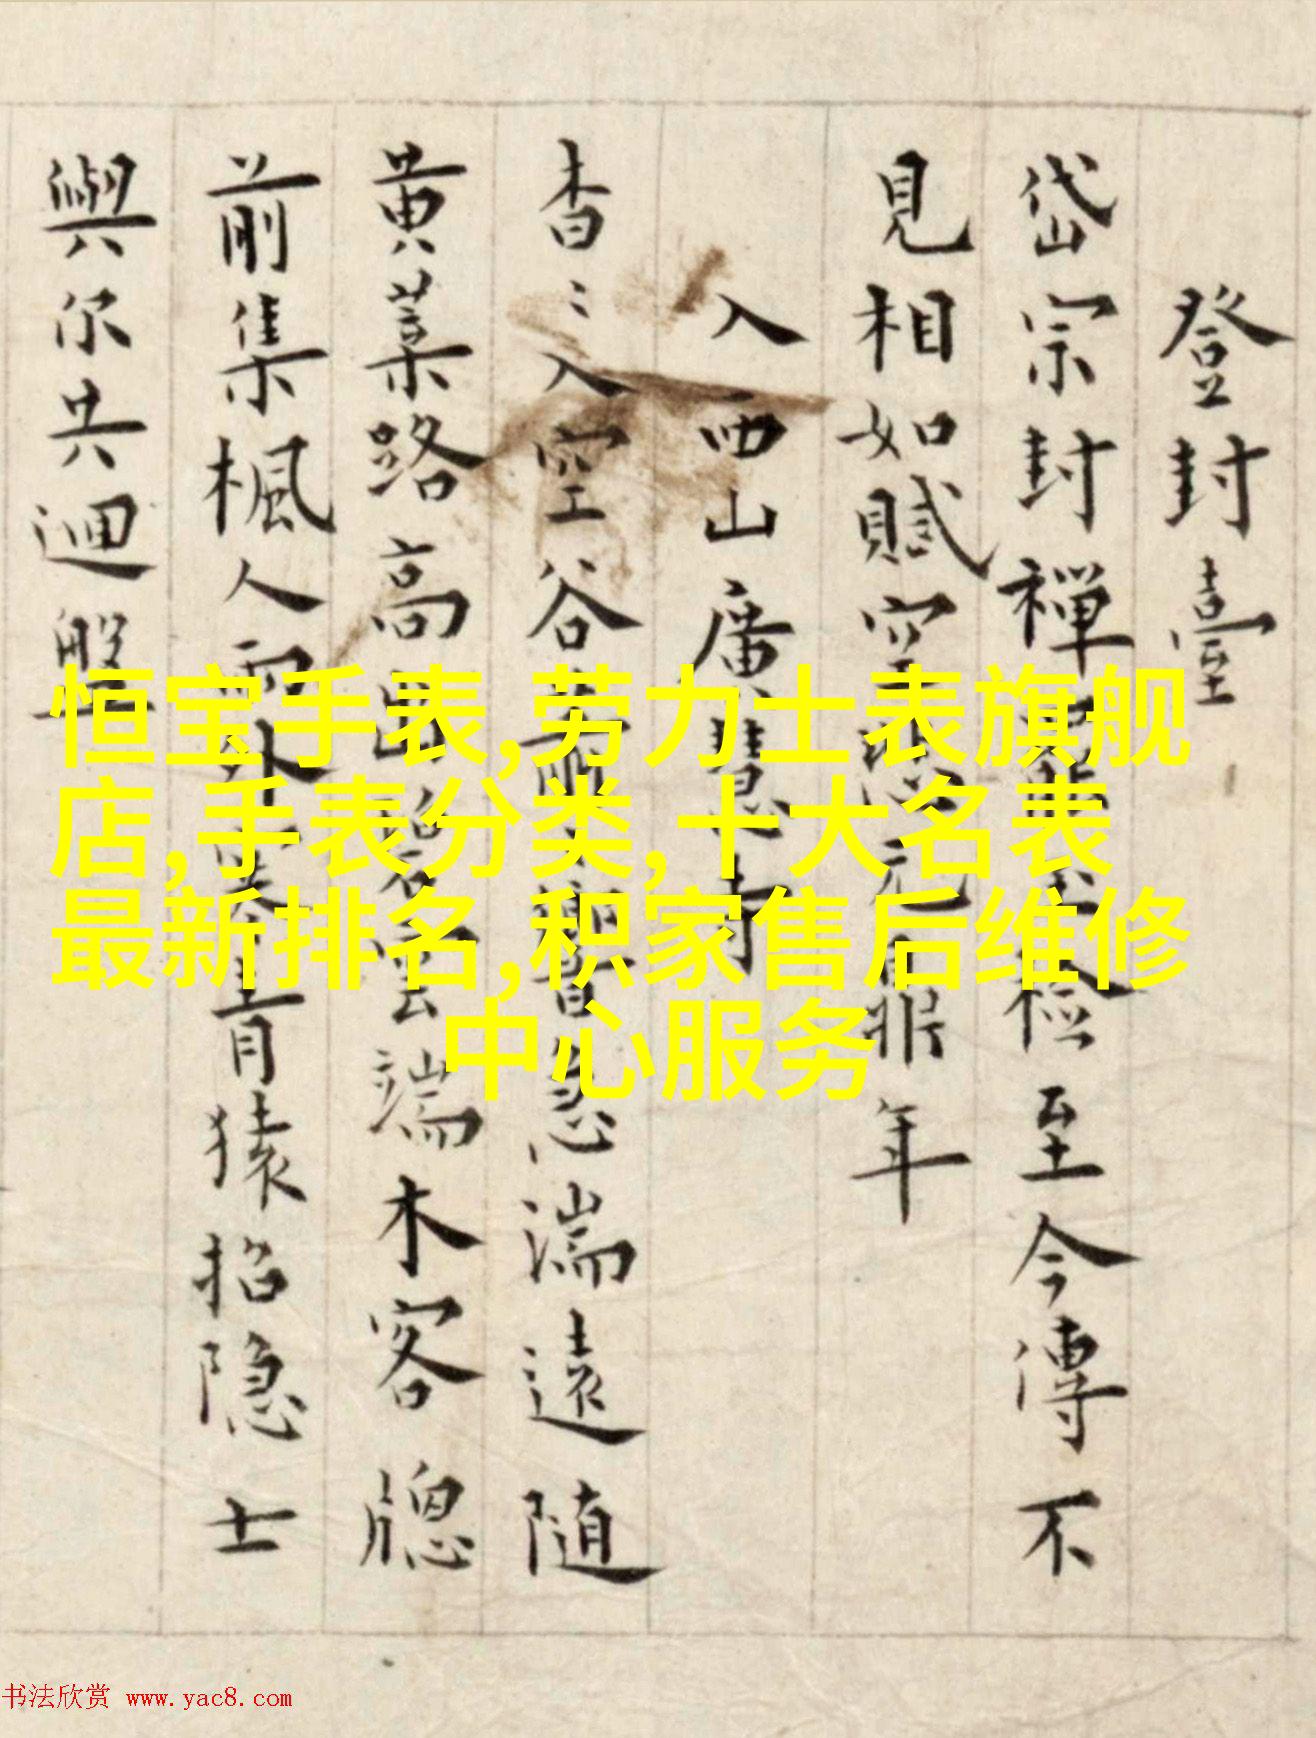 登封臺
岱宗封禪
至今傳不
見相如賦空
年
入西山廣慧寺
杳〻入空谷
急湍遠隨
黄葉路高
雲端木客牕
前集楓人雨外
青猿招隐士
與尔共迴盤
恒宝手表,劳力士表旗舰
店,手表分类,十大名表
最新排名,积家售后维修
中心服务
书法欣赏 www.yac8.com